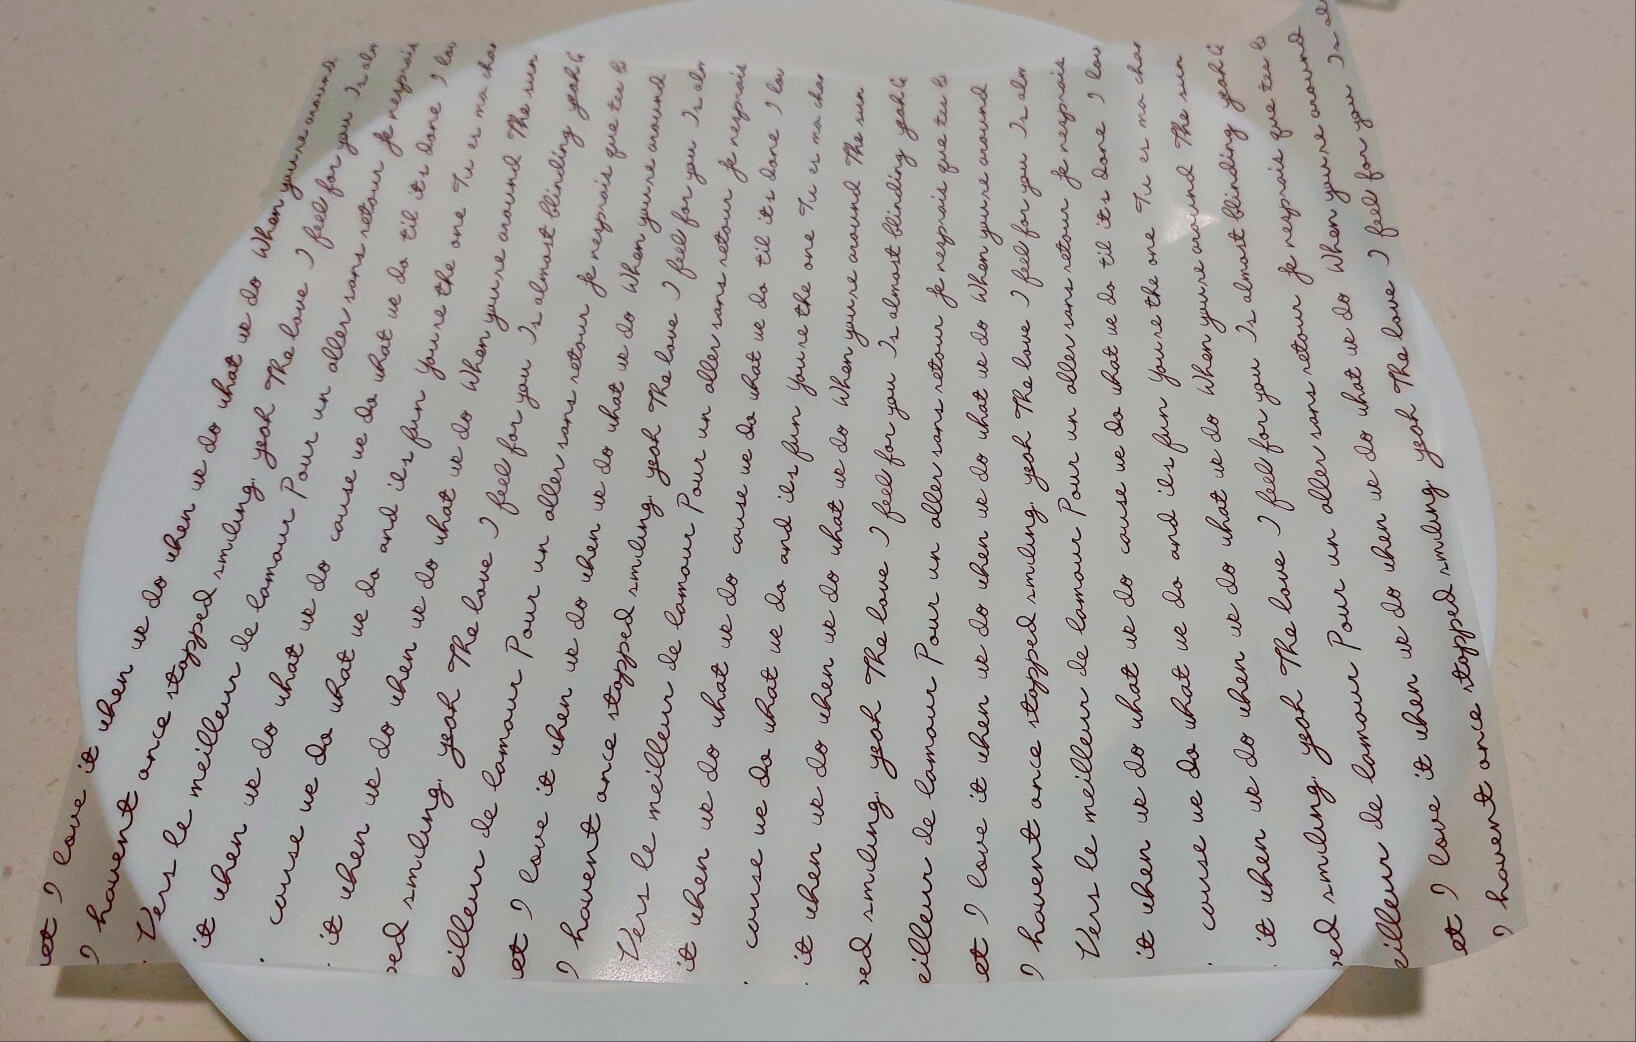 et I love it when we do when we do what we do When youre around
I havent once stopped smiling. yeah The love I feel for you Is alm
Vers le meilleur de lamour Pour un aller sans retour Je nesprais
it when we do what we do cause we do what we do til its done I lov
cause we do what we do and its fun Youre the one Tu es ma chan
it when we do when we do what we do When youre around The sun
ped smiling. yeah The love I feel for you Is almost blinding yeah
eilleur de lamour Pour un aller sans retour Je nesprais que
et I love it when we do when we do what we do When youre around
I havent once stopped smiling. yeah The love I feel for you Is alm
Vers le meilleur de lamour Pour un aller sans retour Je nesprais
it when we do what we do cause we do what we do til its done I lov
cause we do what we do and its fun Youre the one Tu es ma chan
it when we do when we do what we do When youre around The sun
ped smiling. yeah The love I feel for you Is almost blinding yeah
eilleur de lamour Pour un aller sans retour Je nesprais que
et I love it when we do when we do what we do When youre around
I havent once stopped smiling. yeah The love I feel for you Is alm
Vers le meilleur de lamour Pour un aller sans retour Je nesprais
it when we do what we do cause we do what we do til its done I lov
cause we do what we do and its fun Youre the one Tu es ma chan
it when we do when we do what we do When youre around The sun
ped smiling. yeah The love I feel for you Is almost blinding yeah
eilleur de lamour Pour un aller sans retour Je nesprais que
et I love it when we do when we do what we do When youre around
I havent once stopped smiling. yeah The love I feel for you Is al